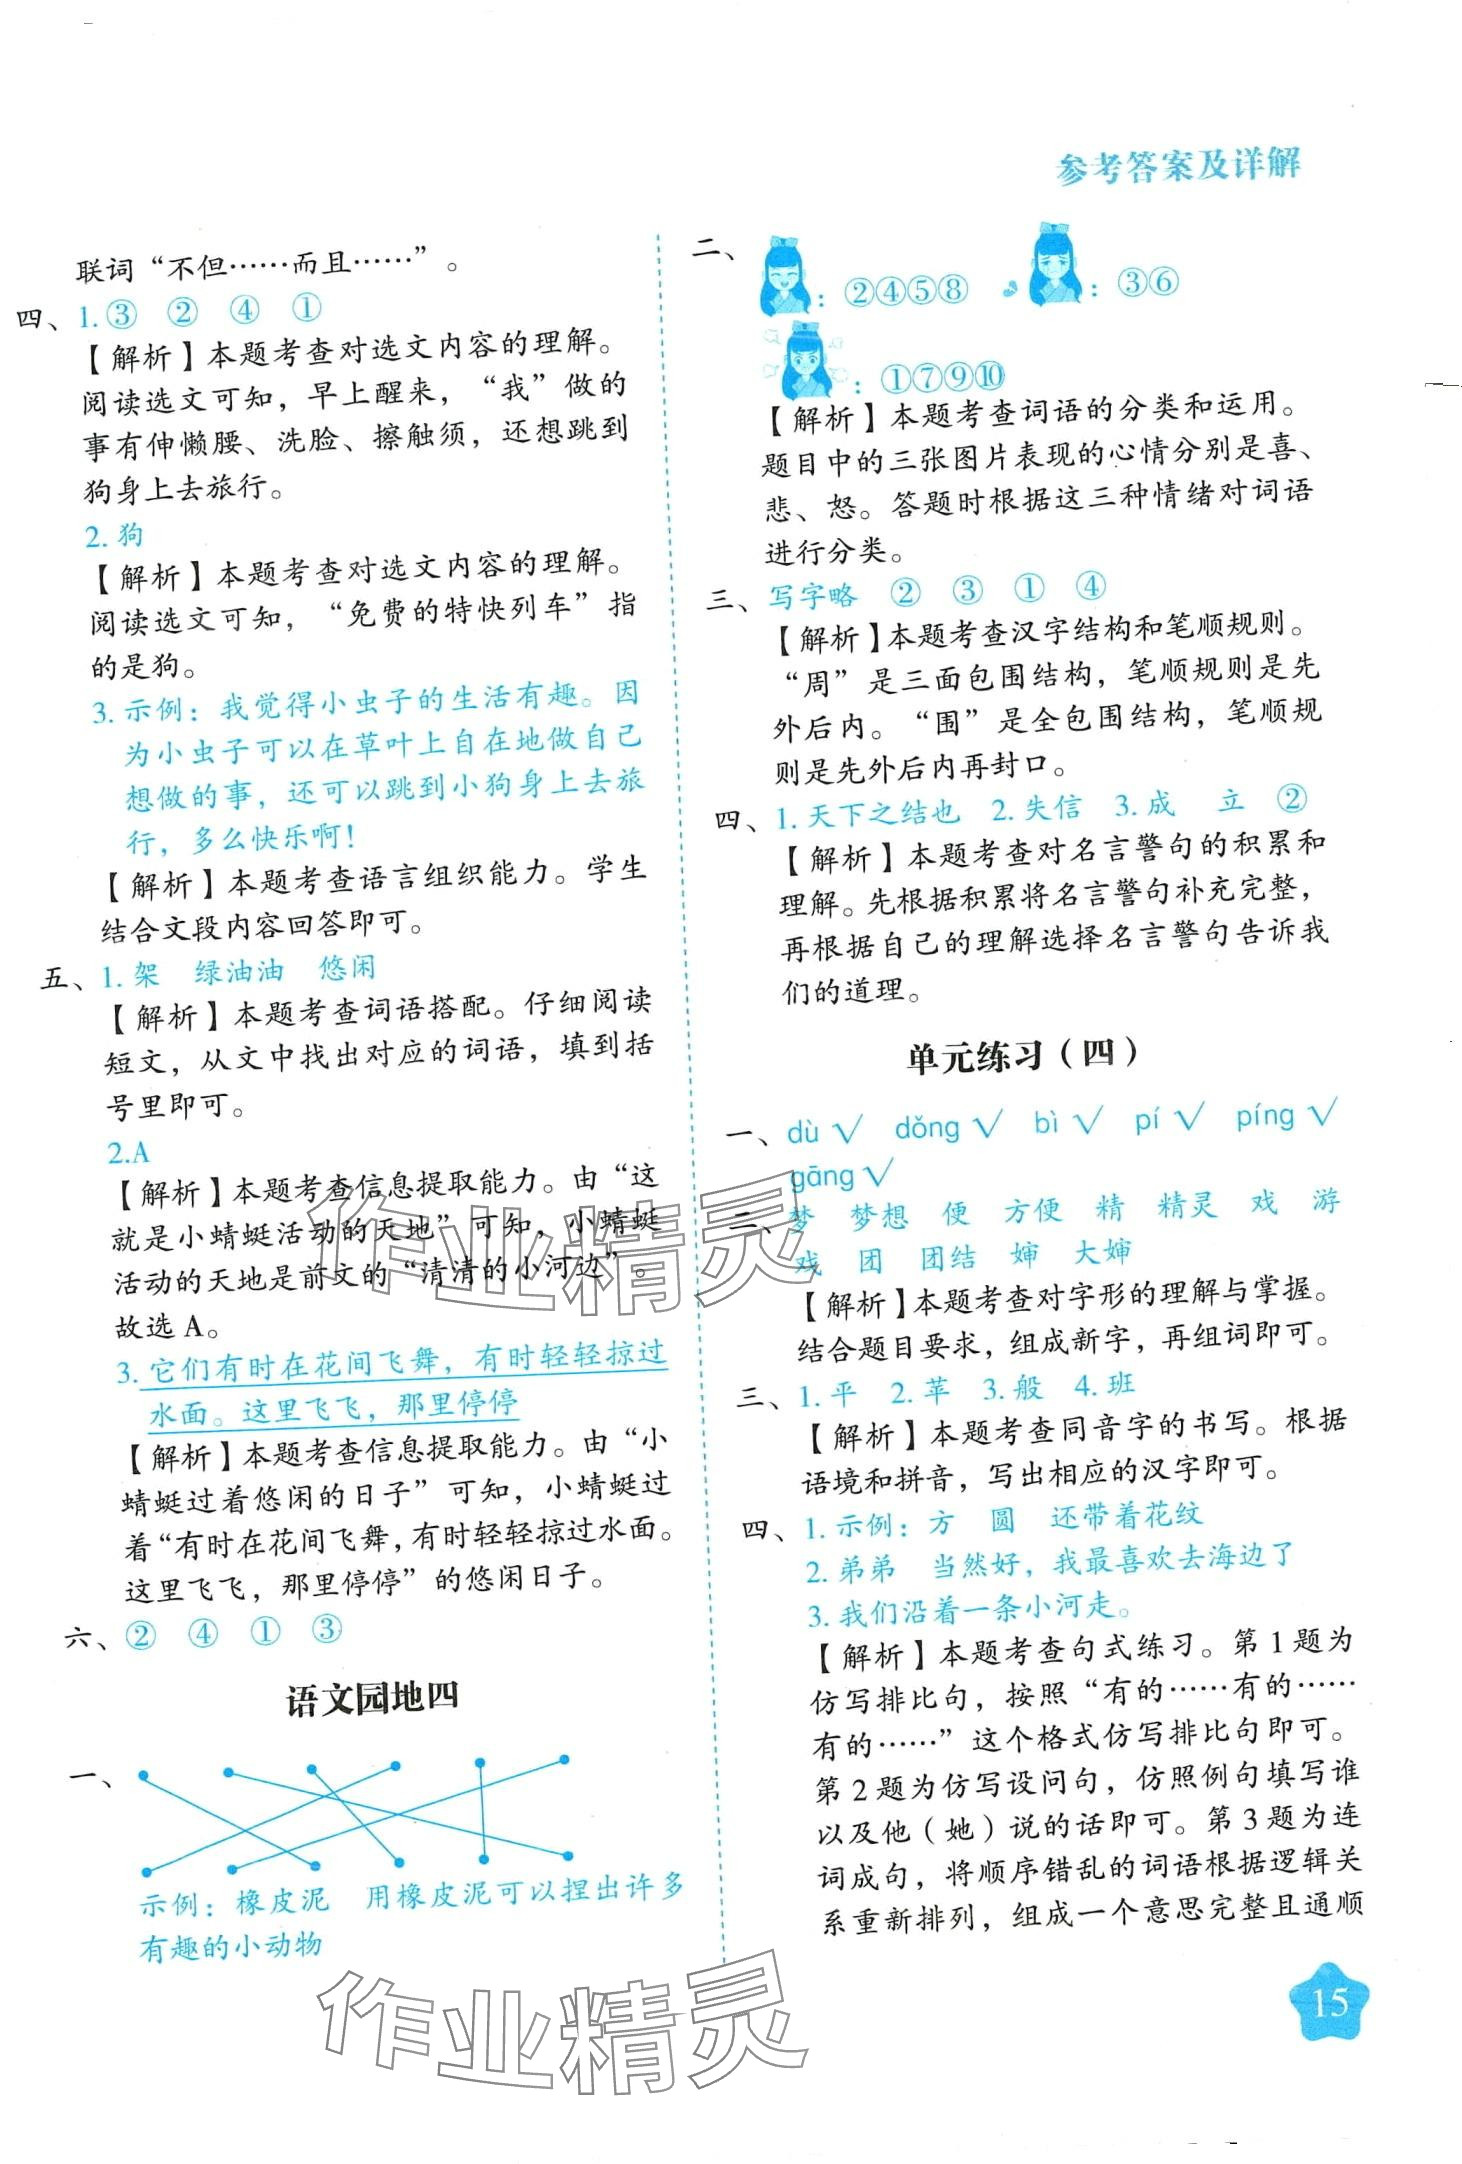 参考答案及详解
联词“不但……而且……”。
四、1.③ ② ④ ①
【解析】本题考查对选文内容的理解。
阅读选文可知，早上醒来，“我”做的
事有伸懒腰、洗脸、擦触须，还想跳到
狗身上去旅行。
2.狗
【解析】本题考查对选文内容的理解。
阅读选文可知，“免费的特快列车”指
的是狗。
3.示例：我觉得小虫子的生活有趣。因
为小虫子可以在草叶上自在地做自己
想做的事，还可以跳到小狗身上去旅
行，多么快乐啊！
【解析】本题考查语言组织能力。学生
结合文段内容回答即可。
五、1.架 绿油油 悠闲
【解析】本题考查词语搭配。仔细阅读
短文，从文中找出对应的词语，填到括
号里即可。
2.A
【解析】本题考查信息提取能力。由“这
就是小蜻蜓活动的天地”可知，小蜻蜓
活动的天地是前文的“清清的小河边”。
故选A。
3.它们有时在花间飞舞，有时轻轻掠过
水面。这里飞飞，那里停停
【解析】本题考查信息提取能力。由“小
蜻蜓过着悠闲的日子”可知，小蜻蜓过
着“有时在花间飞舞，有时轻轻掠过水面。
这里飞飞，那里停停”的悠闲日子。
六、② ④ ① ③
语文园地四
一、
示例：橡皮泥 用橡皮泥可以捏出许多
有趣的小动物
二、：②④⑤⑧ ：③⑥
：①⑦⑨⑩
【解析】本题考查词语的分类和运用。
题目中的三张图片表现的心情分别是喜、
悲、怒。答题时根据这三种情绪对词语
进行分类。
三、写字略 ② ③ ① ④
【解析】本题考查汉字结构和笔顺规则。
“周”是三面包围结构，笔顺规则是先
外后内。“围”是全包围结构，笔顺规
则是先外后内再封口。
四、1.天下之结也 2.失信 3.成 立 ②
【解析】本题考查对名言警句的积累和
理解。先根据积累将名言警句补充完整，
再根据自己的理解选择名言警句告诉我
们的道理。
单元练习（四）
一、dù √ dǒng √ bì √ pí √ píng √
gāng √
二、梦 梦想 便 方便 精 精灵 戏 游
戏 团 团结 婶 大婶
【解析】本题考查对字形的理解与掌握。
结合题目要求，组成新字，再组词即可。
三、1.平 2.苹 3.般 4.班
【解析】本题考查同音字的书写。根据
语境和拼音，写出相应的汉字即可。
四、1.示例：方 圆 还带着花纹
2.弟弟 当然好，我最喜欢去海边了
3.我们沿着一条小河走。
【解析】本题考查句式练习。第1题为
仿写排比句，按照“有的……有的……
有的……”这个格式仿写排比句即可。
第2题为仿写设问句，仿照例句填写谁
以及他（她）说的话即可。第3题为连
词成句，将顺序错乱的词语根据逻辑关
系重新排列，组成一个意思完整且通顺
15
作业精灵
作业精灵